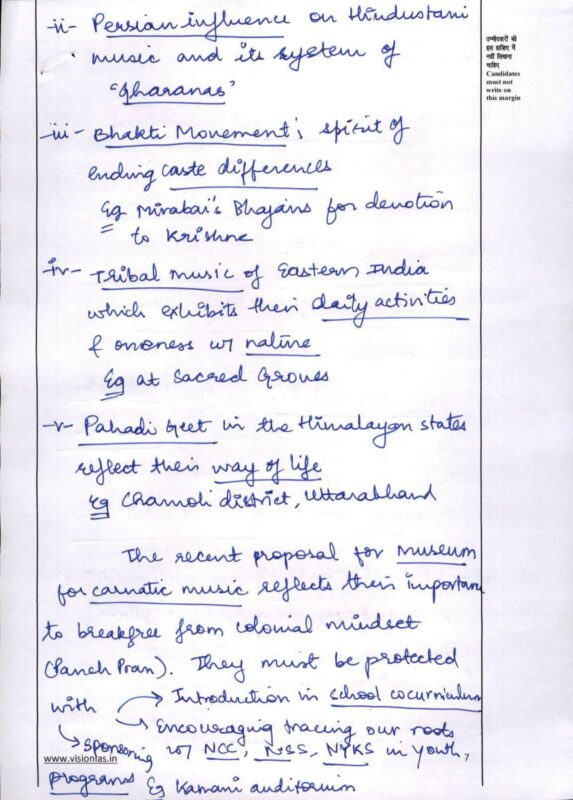 -ii- Persian influence on Hindustani
music and its system of
"Gharanas"
-iii- Bhakti Movement's spirit of
ending caste differences
Eg Mirabai's Bhajans for devotion
to Krishna
-iv- Tribal music of Eastern India
which exhibits their daily activities
& oneness w/ nature
Eg at Sacred Groves
-v- Pahadi Geet in the Himalayan states
reflect their way of life
Eg Chamoli district, Uttarakhand
The recent proposal for museum
for carnatic music reflects their important
to breakfree from colonial mindset
(Panch Pran). They must be protected
with → Introduction in school cocurriculum
→ Encouraging tracing our roots
→ Sponsoring w/ NCC, NSS, NYKS in youth
programs Eg Kamani auditorium
उम्मीदवारों को
इस हाशिए में
नहीं लिखना
चाहिए
Candidates
must not
write on
this margin
www.visionias.in
7